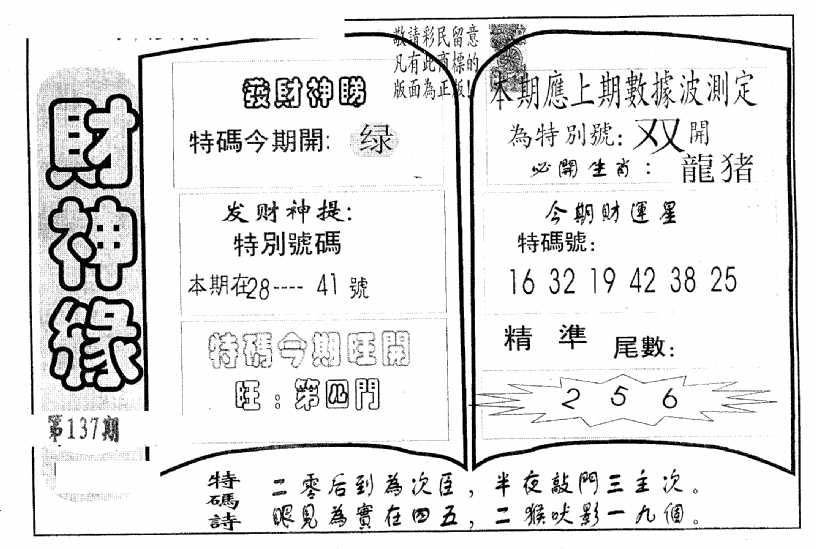 財神緣
第137期
敬請彩民留意
凡有此商標的
版面為正版!
發財神睇
特碼今期開: 绿
发财神提:
特別號碼
本期在28---- 41 號
特碼今期旺開
旺:第四門
本期應上期數據波測定
為特別號: 双 開
必開生肖: 龍猪
今期財運星
特碼號:
16 32 19 42 38 25
精 準 尾數:
2 5 6
特碼詩
二零后到為次臣,半夜敲門三主次。
眼見為實在四五,二猴吠影一九個。